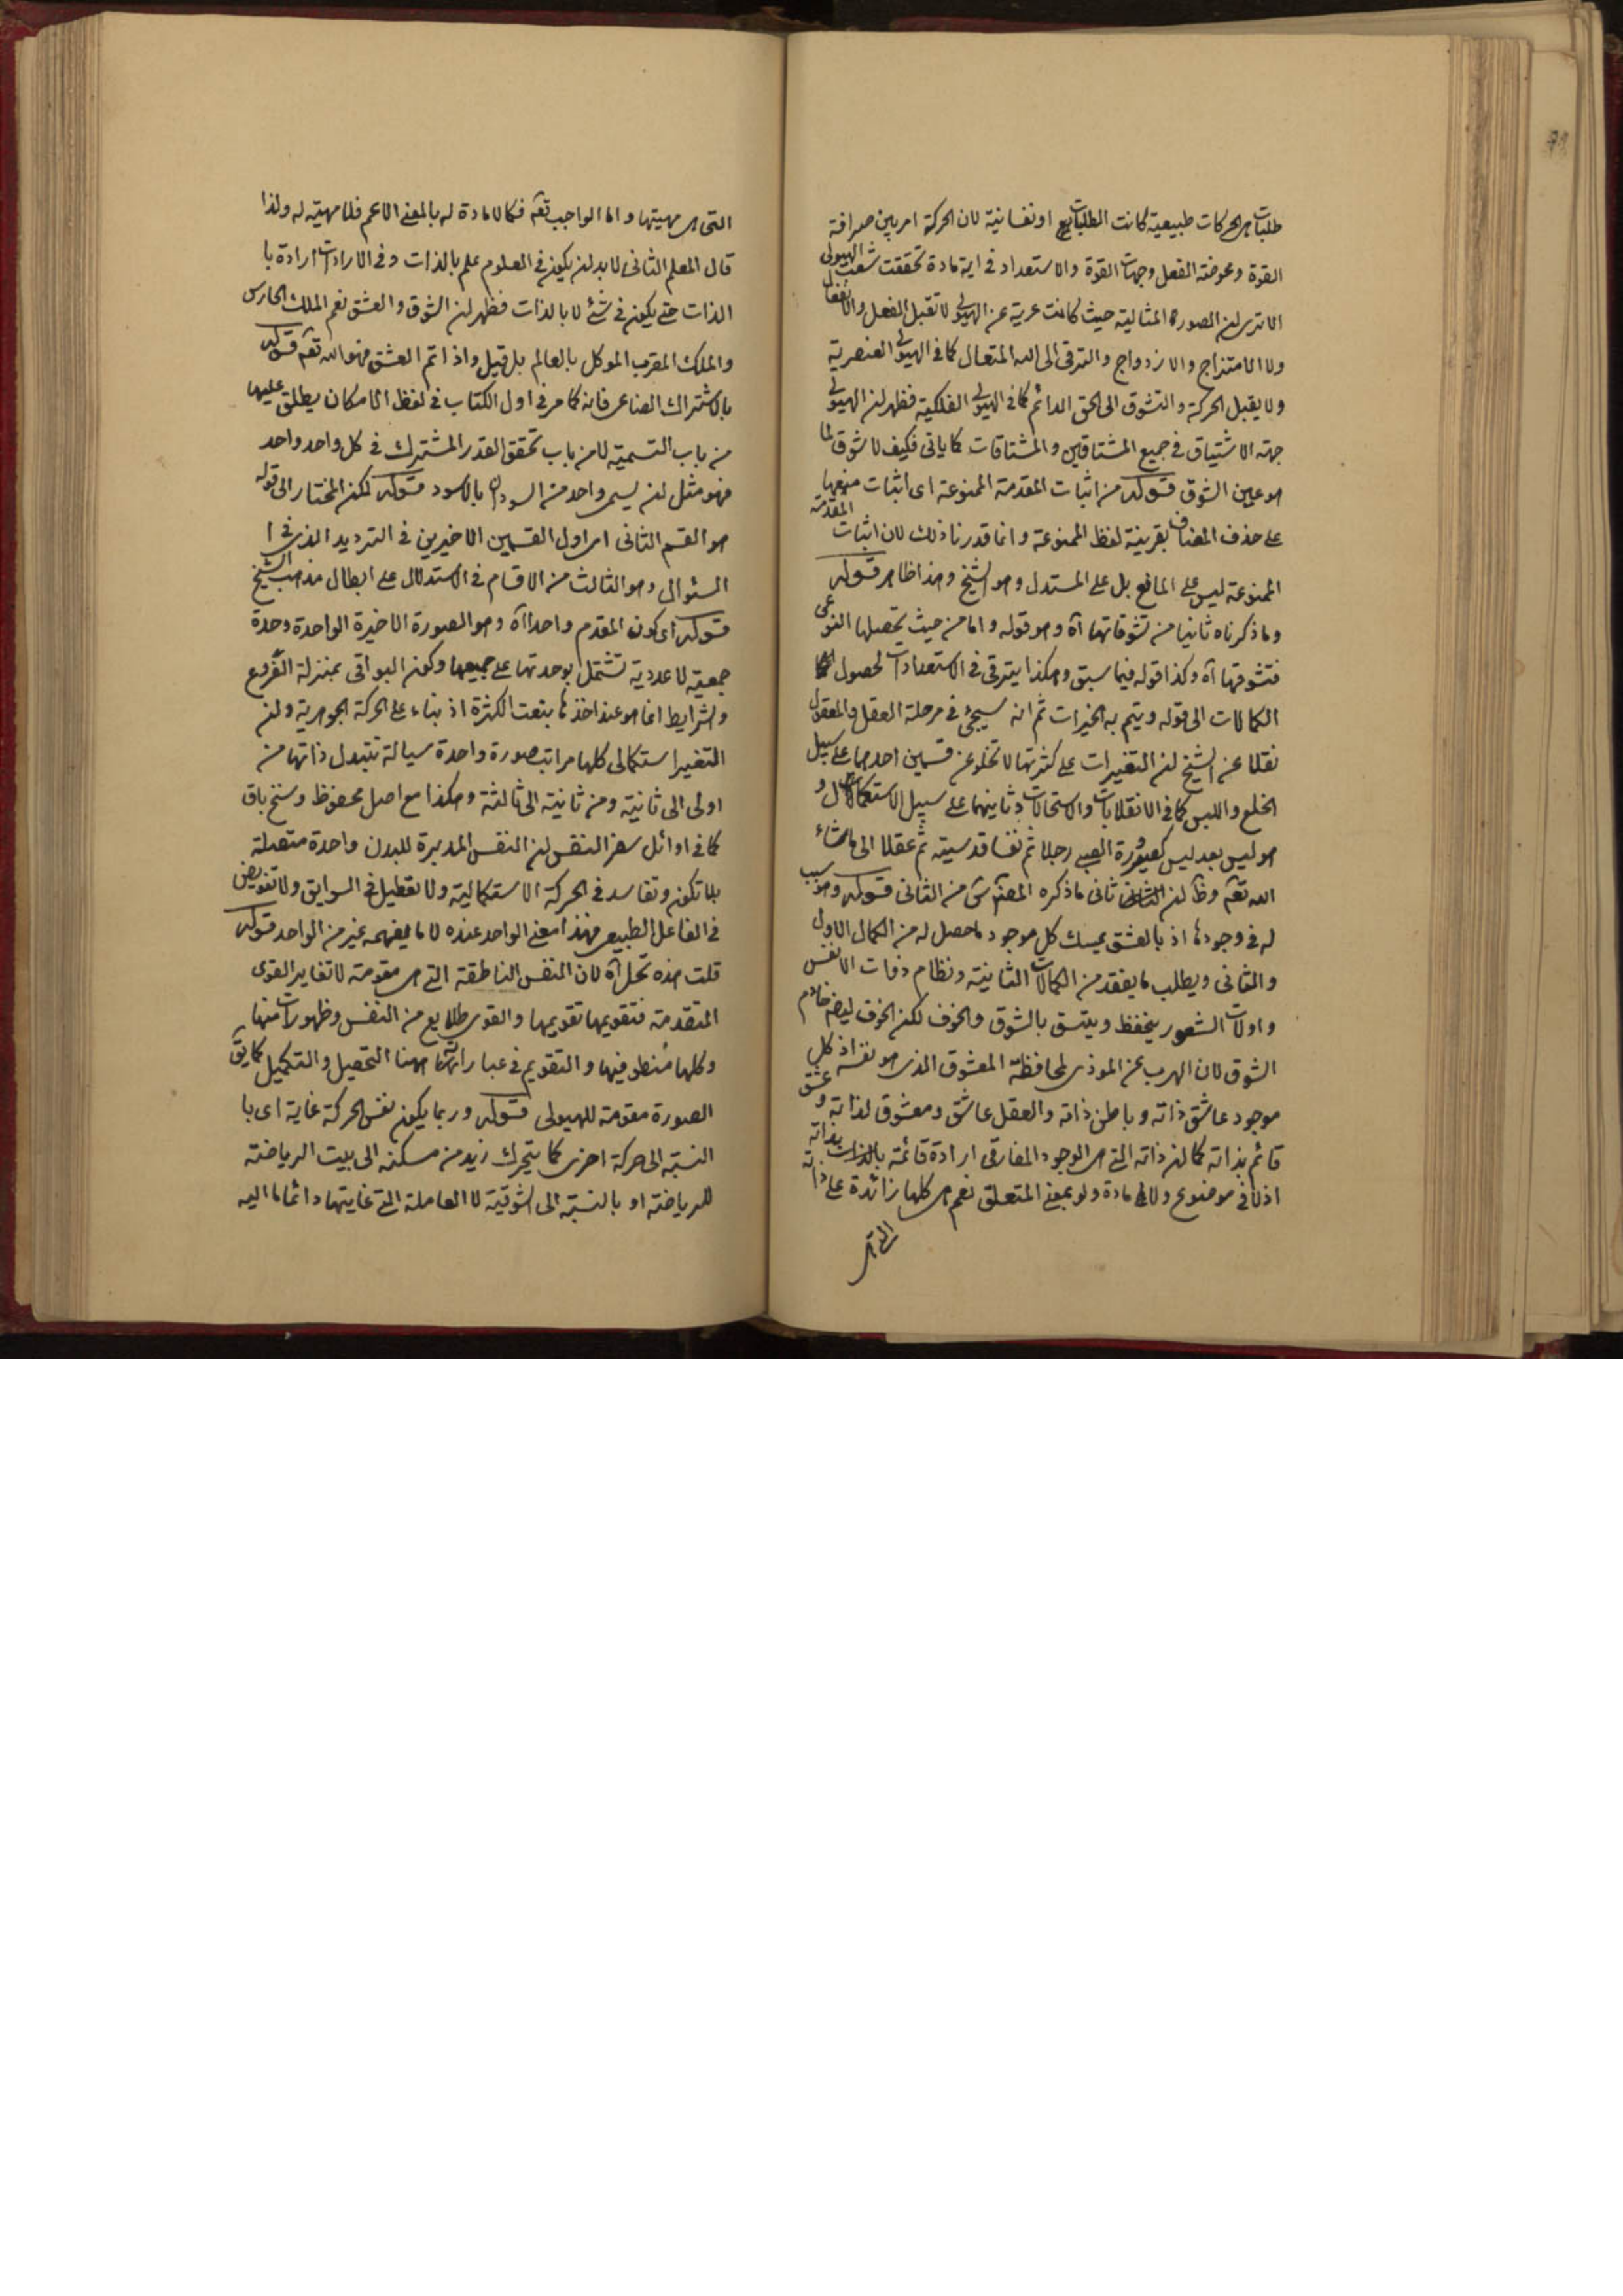 طلبات هی الحرکات طبیعیة کانت الطلبات او نفسانیة لان الحرکة امر بین صرافة
القوة ومحوضة الفعل وجهات القوة والاستعداد فی ایة مادة تحققت شعب الهیولی
الا تری ان الصورة المثالیة حیث کانت عریة عن الهیولی لا تقبل الفعل والانفعال
ولا الامتزاج والازدواج والترقی الی الله المتعال کما فی الهیولی العنصریة
ولا یقبل الحرکة والتشوق الی الحق الدائم کما فی الهیولی الفلکیة فظهر ان الهیولی
جهة الاشتیاق فی جمیع المشتاقین والمشتاقات کما یاتی فکیف لا شوق لما
هو عین الشوق قوله من اثبات المقدمة الممنوعة ای اثبات منعها
علی حذف المضاف بقرینة لفظ الممنوعة وانما قدرنا ذلک لان اثبات المقدمة
الممنوعة لیس علی المانع بل علی المستدل وهو الشیخ وهذا ظاهر قوله
وما ذکرناه ثانیا من تشوقاتها آه وهو قوله واما من حیث تحصیلها النوعی
فتشوقها آه وکذا قوله فیما سبق وهکذا یترقی فی الاستعدادات لحصول
الکمالات الی قوله ویتم به الخیرات ثم انه سیجیٔ فی مرحلة العقل والمعقول
نقلا عن الشیخ ان التغیرات علی کثرتها لا تخلو عن قسمین احدهما علی سبیل
الخلع واللبس کما فی الانقلابات والاستحالات وثانیهما علی سبیل الاستکمال و
هو لبس بعد لبس کصیرورة الصبی رجلا ثم نفسا قدسیة ثم عقلا الی ماشاء
الله تعه وظ ان الثانی ثانی ما ذکره المصنف من الثانی قوله وهو سبب
له فی وجودها اذ بالعشق یمسک کل موجود ما حصل له من الکمال الاول
والثانی ویطلب ما یفقد من الکمالات الثانیة ونظام ذوات الانفس
واولات الشعور ینحفظ ویتسق بالشوق والخوف لکن الخوف ایضا خادم
الشوق لان الهرب عن الموذی لمحافظة المعشوق الذی هو نفسه اذ کل
موجود عاشق ذاته وباطن ذاته والعقل عاشق ومعشوق لذاته وعشق
قائم بذاته کما ان ذاته التی هی الوجود المفارقی ارادة قائمة بذاته
اذ لا فی موضوع ولا فی مادة ولو بمعنی المتعلق نعم هی کلها زائدة علی ذاته
التی هی مهیتها واما الواجب تعه فکما لا مادة له بالمعنی الاعم فلا مهیة له ولذا
قال المعلم الثانی لابد ان یکون فی العلوم علم بالذات وفی الارادات ارادة با
الذات حتی یکون فی شئ لا بالذات فظهر ان الشوق والعشق نعم الملک الحارس
والملک المقرب الموکل بالعالم بل قیل واذا تم العشق فهو الله تعه قوله
بالاشتراک الصناعی فانه کما مر فی اول الکتاب فی لفظ الامکان یطلق علیها
من باب التسمیة لا من باب تحقق القدر المشترک فی کل واحد واحد
فهو مثل ان یسمی واحد من السودان بالاسود قوله لکن المختار الی قوله
هو القسم الثانی ای اول القسمین الاخیرین فی التردید الذی فی ا
السئوال وهو الثالث من الاقسام فی الاستدلال علی ابطال مذهب الشیخ
قوله ای کون المقدم واحدا آه وهو الصورة الاخیرة الواحدة وحدة
جمعیة لا عددیة تشتمل بوحدتها علی جمیعها وکون البواقی بمنزلة الفروع
والشرایط انما هو عند اخذها بنعت الکثرة اذ بناء علی الحرکة الجوهریة وان
التغیر استکمالی کلها مراتب صورة واحدة سیالة تتبدل ذاتها من
اولی الی ثانیة ومن ثانیة الی ثالثة وهکذا مع اصل محفوظ وسنخ باق
کما فی اوائل سفر النفس ان النفس المدبرة للبدن واحدة متصلة
بلا تکون وتفاسد فی الحرکة الاستکمالیة ولا تعطیل فی السوابق ولا تفویض
فی الفاعل الطبیعی فهذا معنی الواحد عنده لا ما یفهمه غیره من الواحد قوله
قلت هذه تحل آه لان النفس الناطقة التی هی مقومة لا تغایر القوی
المتقدمة فتقویمها تقویمها والقوی طلایع من النفس وظهورات منها
وکلها منطو فیها والتقویم فی عباراتنا ههنا التحصیل والتکمیل کما یق
الصورة مقومة للهیولی قوله وربما یکون نفس الحرکة غایة ای با
النسبة الی حرکة اخری کما یتحرک زید من مسکنه الی بیت الریاضة
للریاضة او بالنسبة الی الشوقیة لا العاملة التی غایتها دائما ما الیه